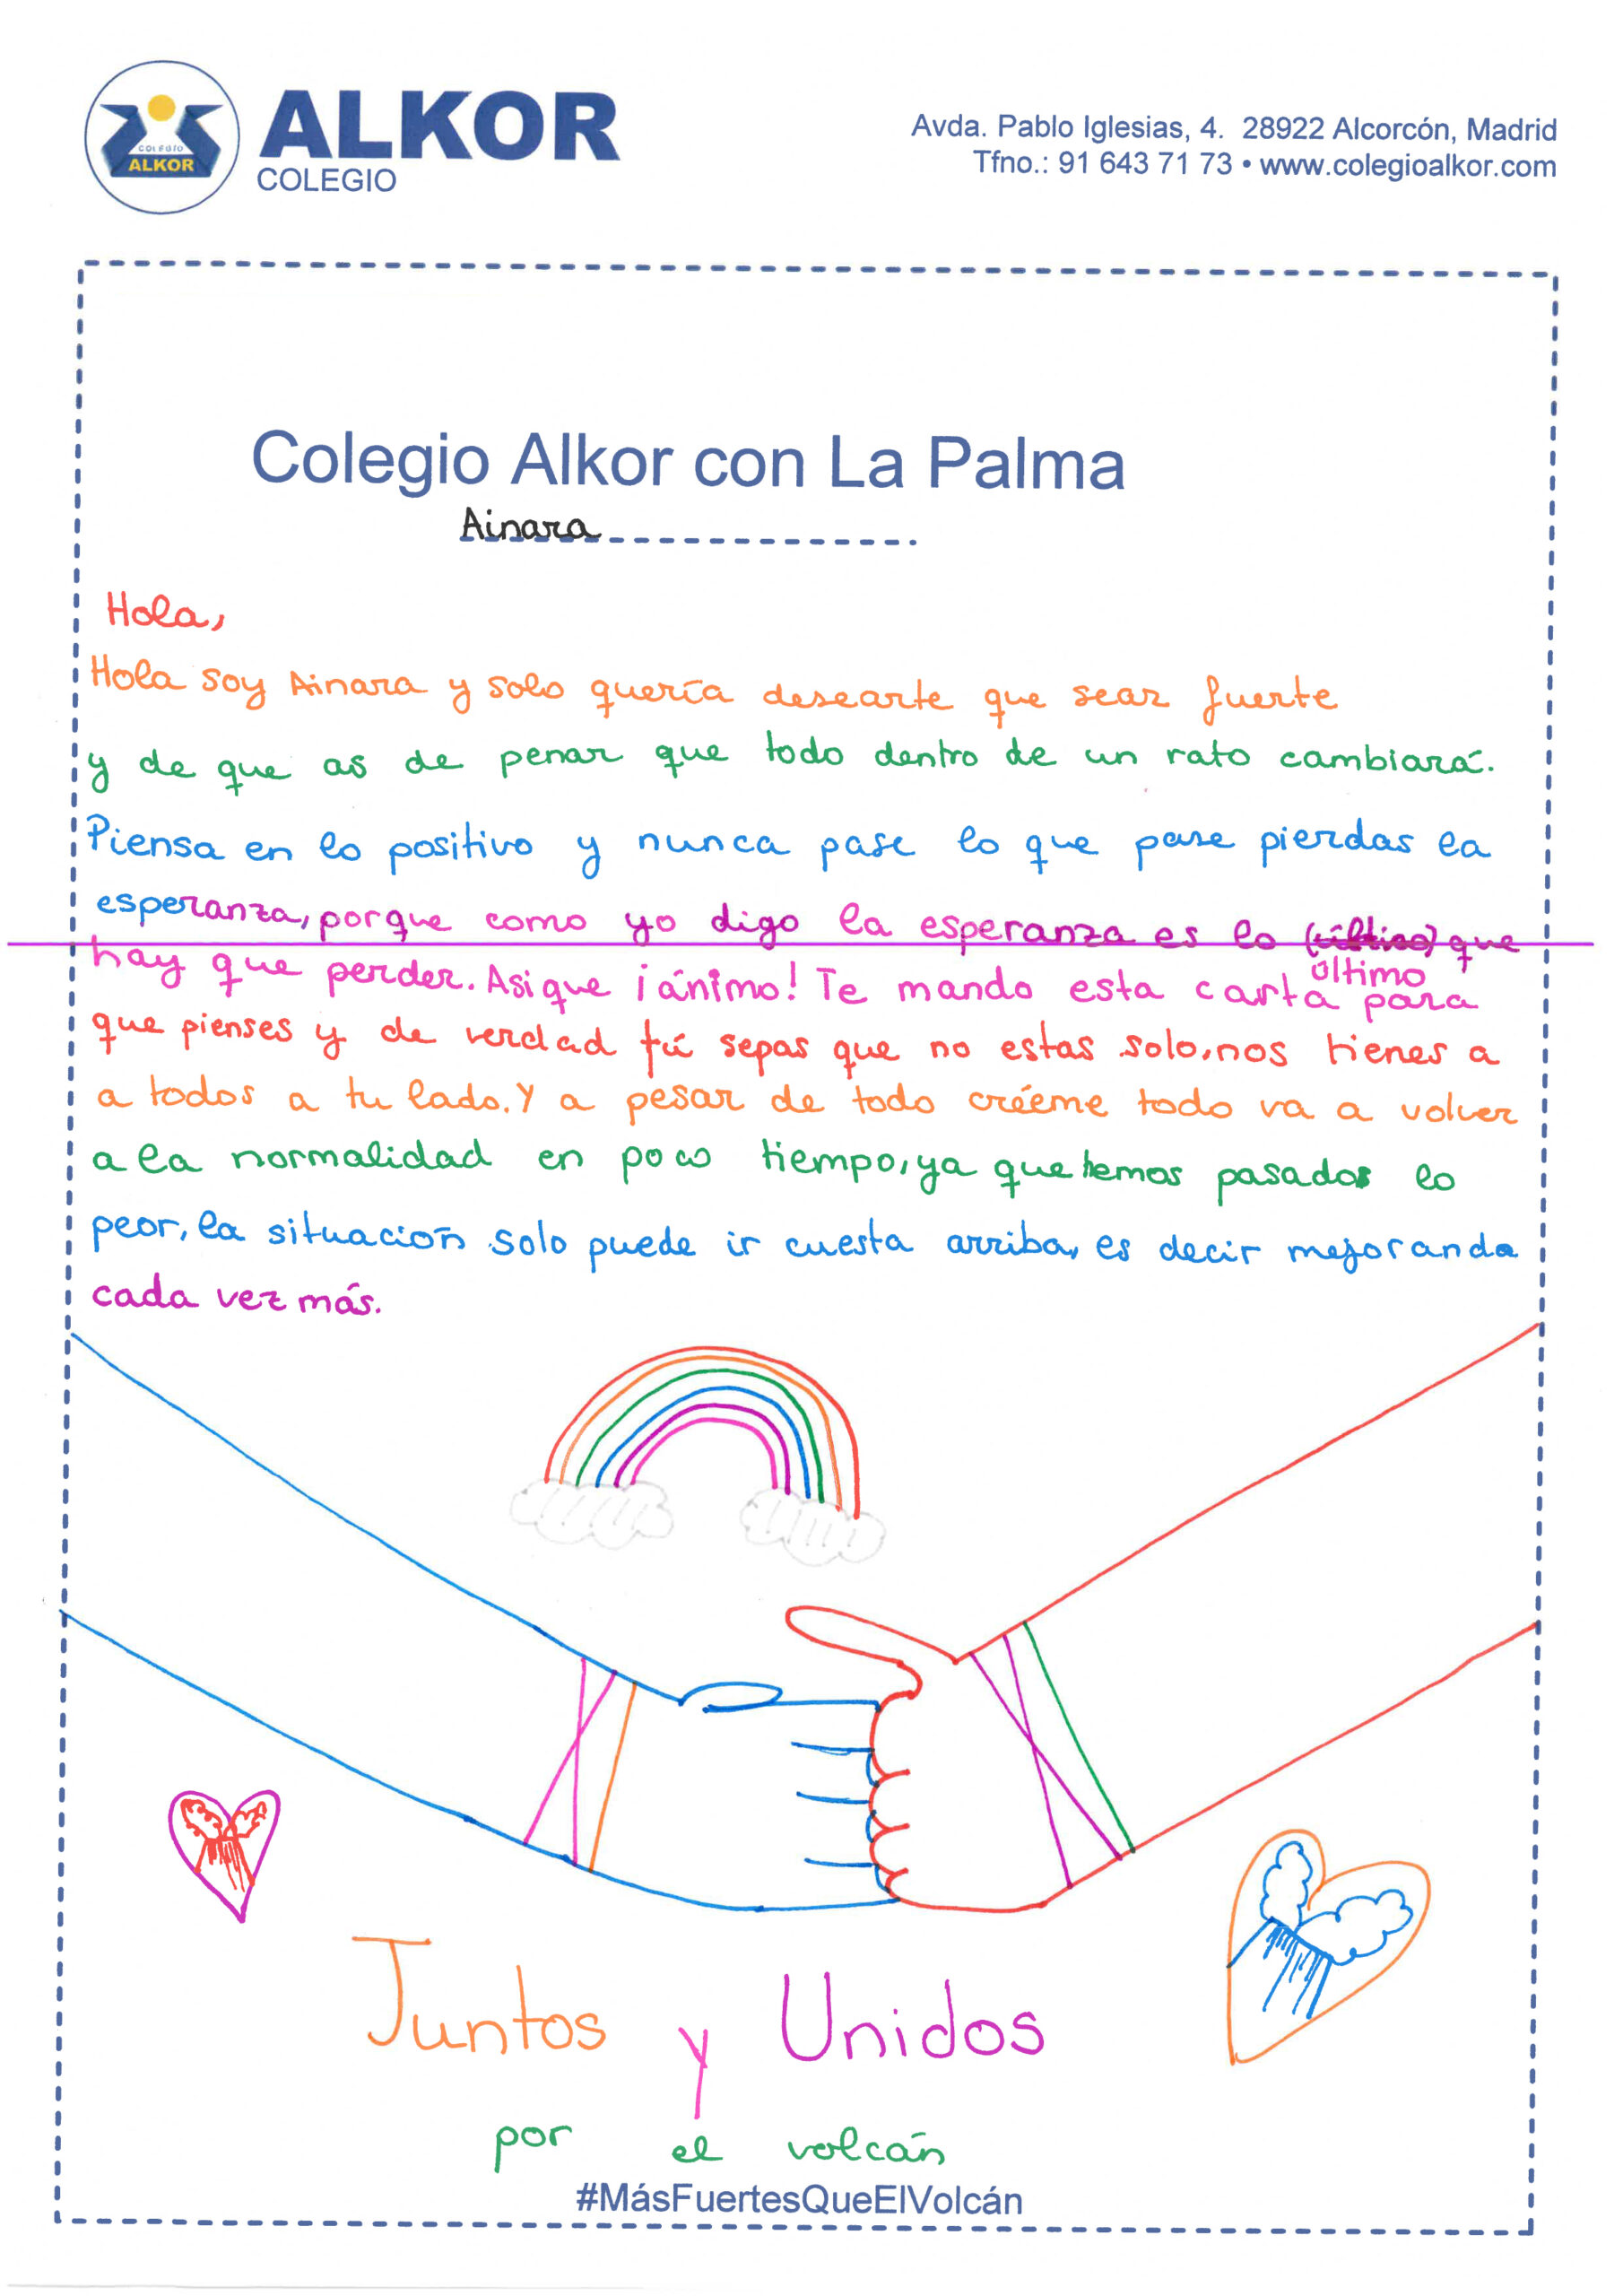 COLEGIO
ALKOR
ALKOR
COLEGIO
Avda. Pablo Iglesias, 4. 28922 Alcorcón, Madrid
Tfno.: 91 643 71 73 • www.colegioalkor.com
Colegio Alkor con La Palma
Ainara
Hola,
Hola soy Ainara y solo quería desearte que sear fuerte
y de que as de penar que todo dentro de un rato cambiará.
Piensa en lo positivo y nunca pase lo que pase pierdas la
esperanza, porque como yo digo la esperanza es lo (último) que
último
hay que perder. Asique ¡ánimo! Te mando esta carta para
que pienses y de verdad tú sepas que no estas solo, nos tienes a
a todos a tu lado. Y a pesar de todo créeme todo va a volver
a la normalidad en poco tiempo, ya que hemos pasados lo
peor, la situación solo puede ir cuesta arriba, es decir mejorando
cada vez más.
Juntos y Unidos
por el volcán
#MásFuertesQueElVolcán